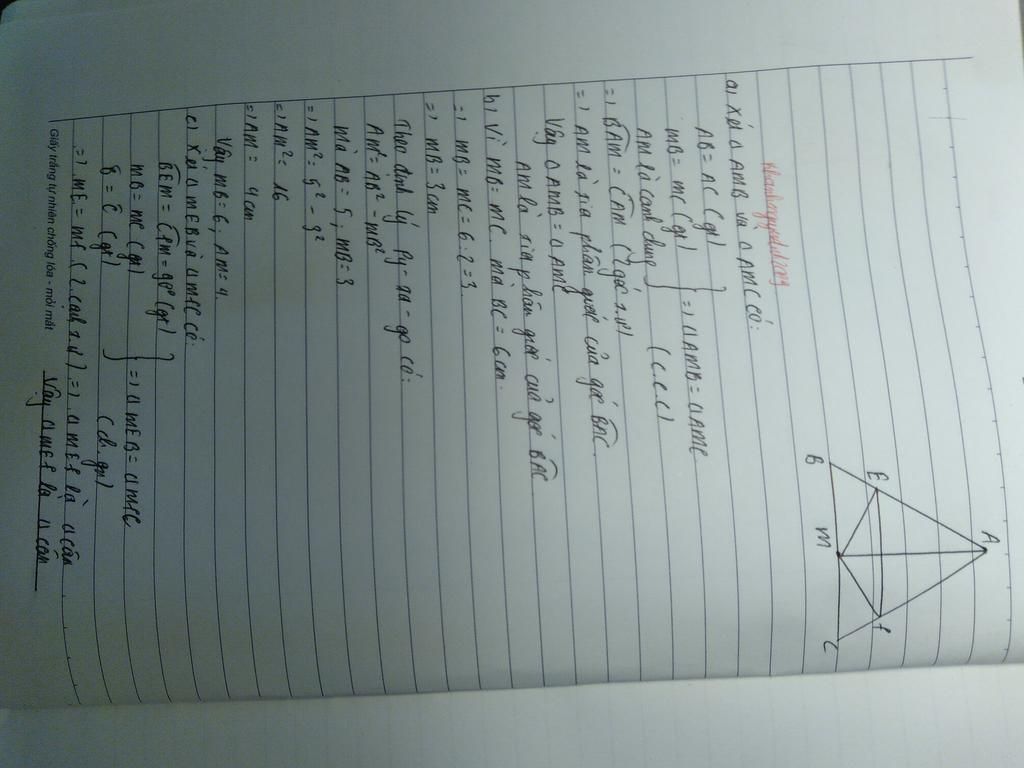 A
E
F
B
M
C
a) Xét Δ AMB và Δ AMC có:
AB = AC (gt)
MB = MC (gt) } => Δ AMB = Δ AMC
AM là cạnh chung (c.c.c)
=> BAM = CAM (2 góc t.ư)
=> AM là tia phân giác của góc BAC.
Vậy Δ AMB = Δ AMC
AM là tia phân giác của góc BAC
b) Vì MB = MC. mà BC = 6 cm.
=> MB = MC = 6 : 2 = 3.
=> MB = 3 cm
Theo định lý Py-ta-go có:
AM² = AB² - MB²
mà AB = 5, MB = 3
=> AM² = 5² - 3²
=> AM² = 16
=> AM = 4 cm
Vậy MB = 6, AM = 4.
c) Xét Δ MEB và Δ MFC có:
BEM = CFM = 90° (gt)
MB = MC (gt) } => Δ MEB = Δ MFC
B = C (gt) (ch.gn)
=> ME = MF (2 cạnh t.ư) => Δ MEF là Δ cân
Vậy Δ MEF là Δ cân
Giấy trắng tự nhiên chống lóa - mỏi mắt